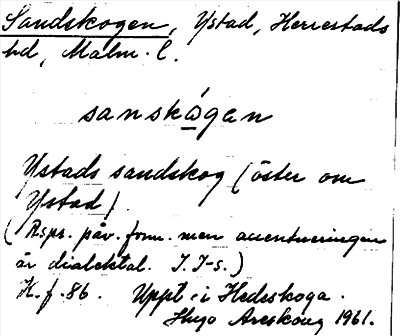 Sandskogen, Ystad, Herrestads
hd, Malm. l.
sanskǻgan
Ystads sandskog (öster om
Ystad).
(Rspr. påv. form. men accentueringen
är dialektal. I. I-s.)
K. f. 86. Uppt. i Hedeskoga.
Hugo Areskoug 1961.